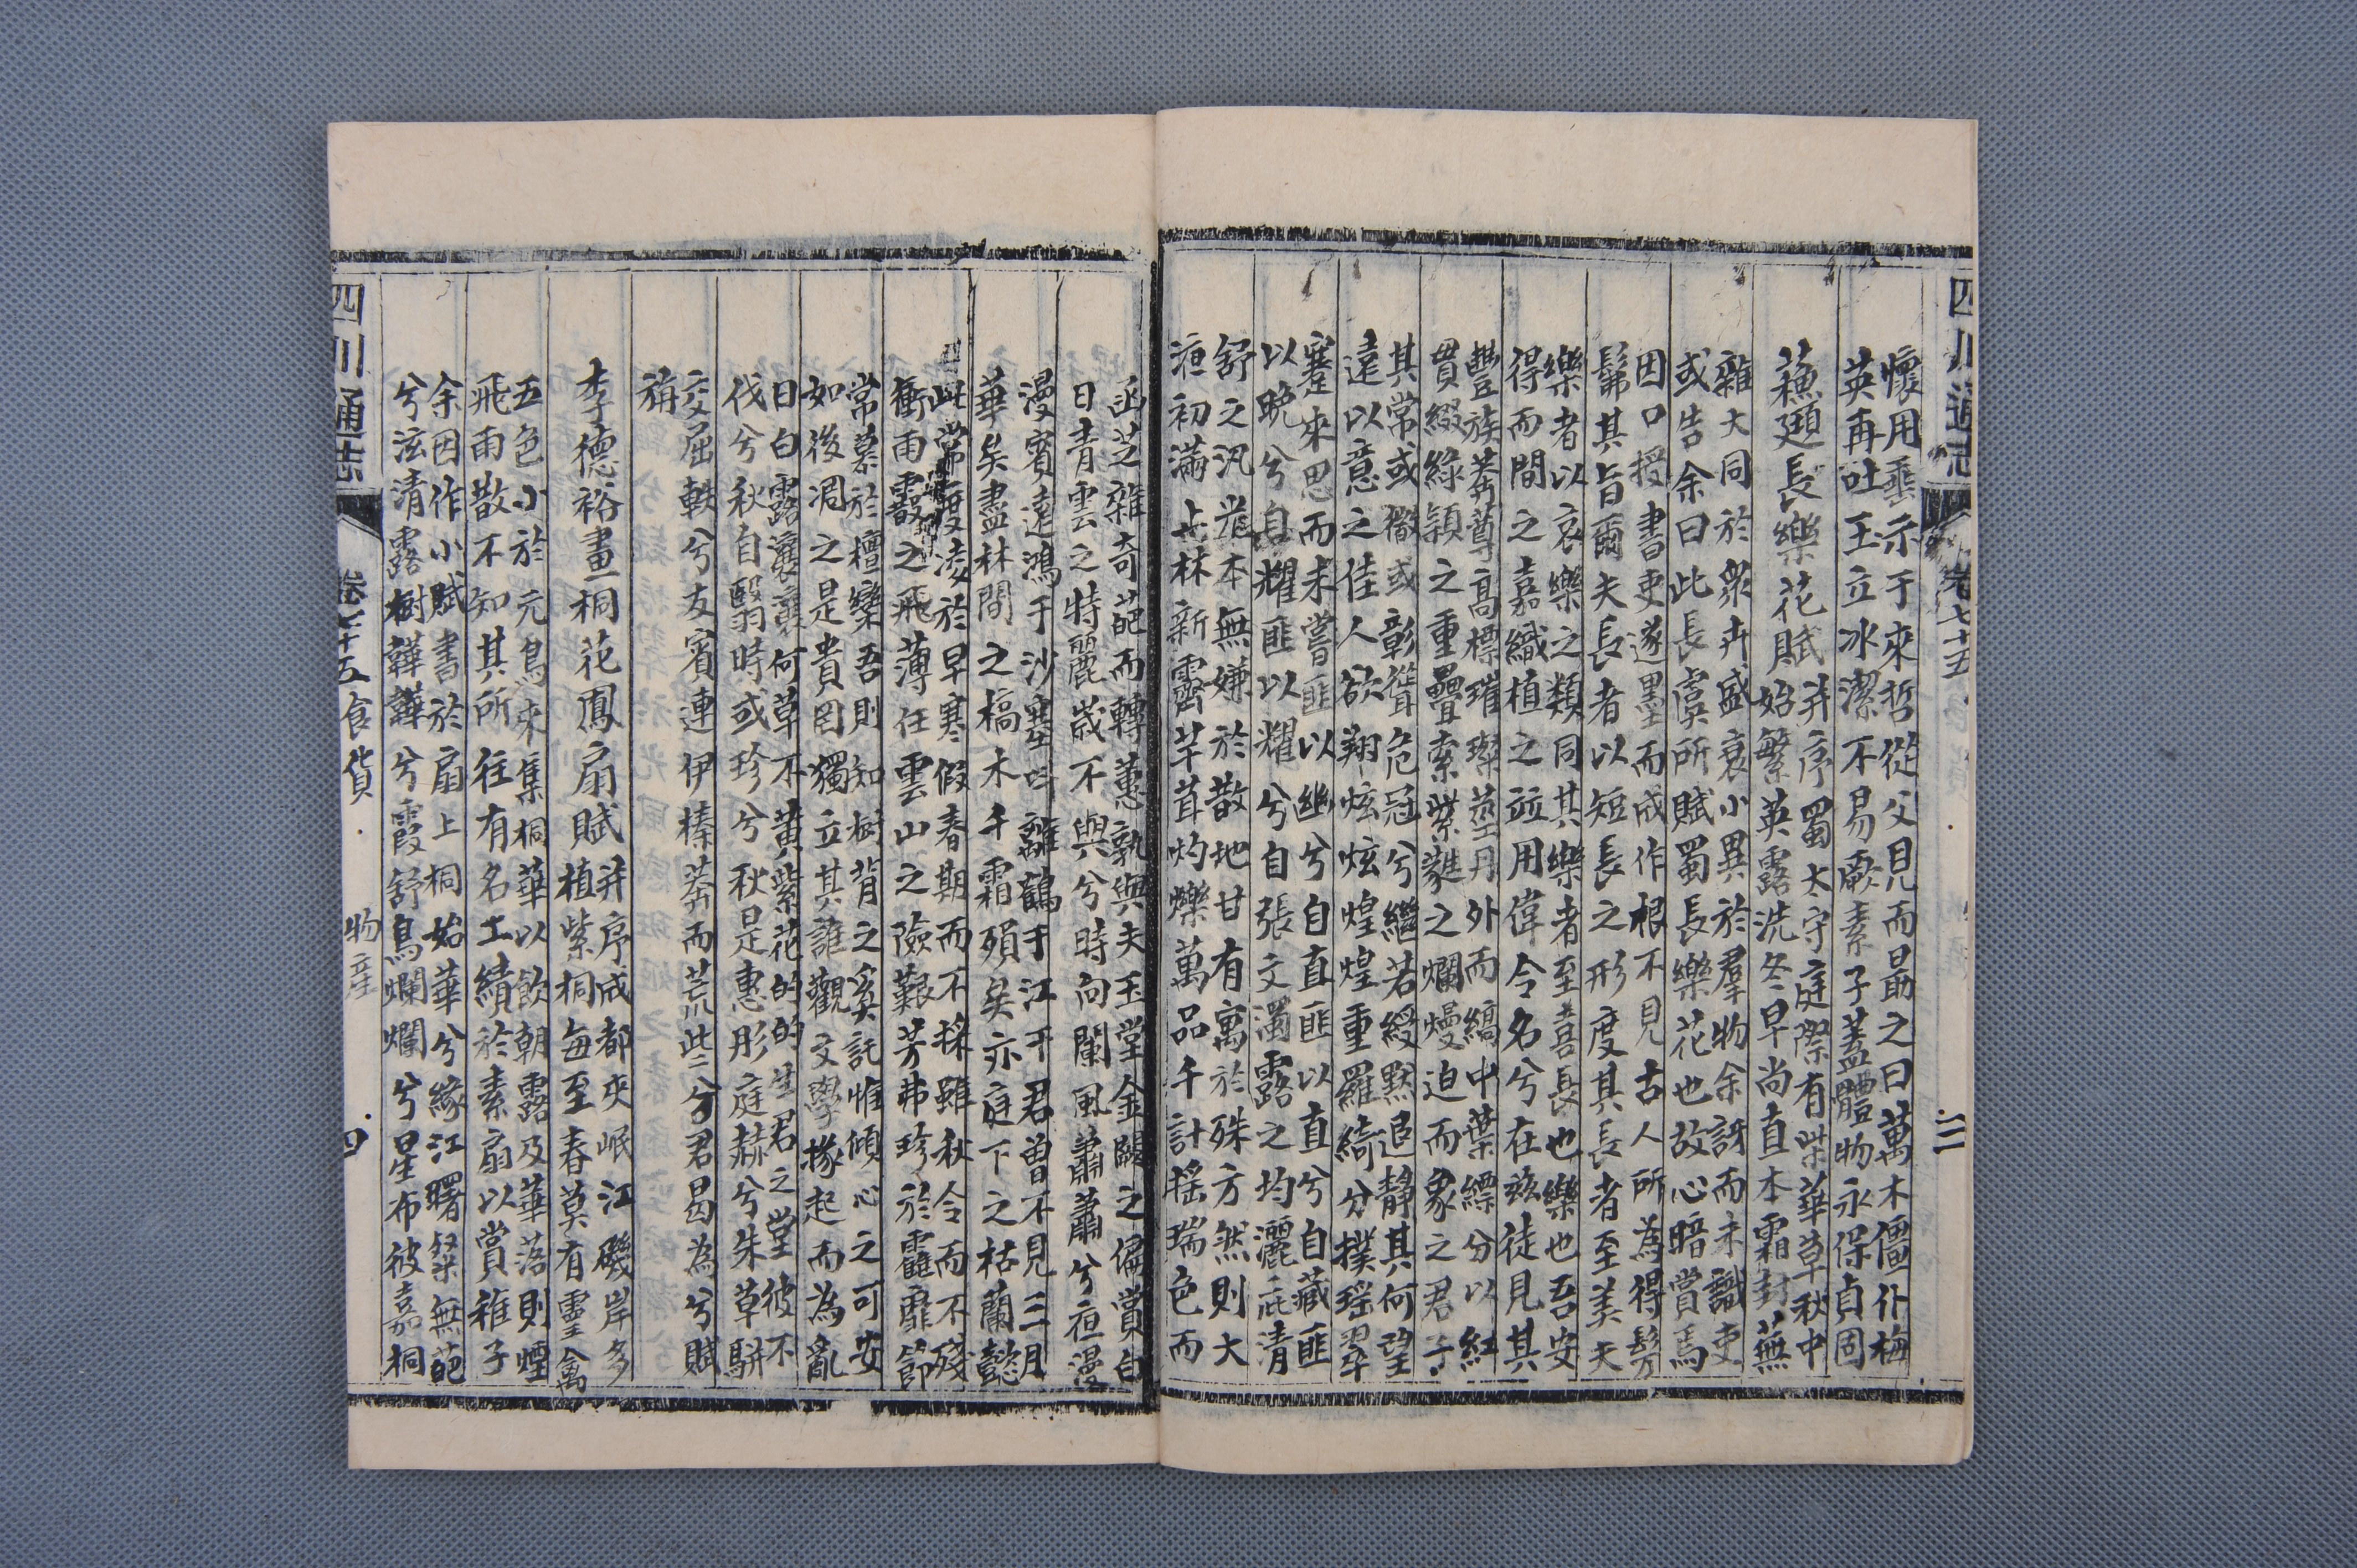 四川通志
卷七十五
三
懷用垂示于來哲從父見而勗之曰萬木僵仆梅
英再吐玉立冰潔不易厥素子蓋體物永保貞固
蘇頲長樂花賦
并序蜀太守庭際有紫華草秋中
始繁英露洗冬早尚直本霜封蕪
雜大同於衆卉盛衰小異於羣物余訝而未識吏
或告余曰此長虞所賦蜀長樂花也故心暗賞焉
因口授書吏遂墨而成作根不見古人所為得髣
髴其旨爾夫長者以短長之形度其長者至美夫
樂者以哀樂之類同其樂者至喜長也樂也吾安
得而間之嘉織植之茲用偉令名兮在茲徒見其
豐族莽蓴高標璀璨莖丹外而縞中葉縹分以紅
貫綴綠穎之重疊索紫蕤之爛熳迫而象之君子
其常或徽或彰聳危冠兮繼若綬默追靜其何望
遠以意之佳人欲翔炫炫煌煌重羅綺分撲瑶翠
蹇來思而未嘗匪以幽兮自直匪以直兮自藏匪
以晩兮自耀匪以耀兮自張文濁露之均灑庇清
舒之汎崔本無嫌於散地甘有寓於殊方然則大
洹初滿上林新霽芊茸灼爍萬品千計摇瑞色而
函芝雜奇葩而轉蕙孰與夫玉堂金闕之偏賞白
日青雲之特麗歲不與兮時向闌風蕭蕭兮洹漫
漫賓遠鴻于沙塞叫離鶴于江干君曽不見三月
華矣盡林間之槁木千霜殞矣亦庭下之枯蘭懿
此常度凌於早寒假春期而不採雖秋令而不殘
衝雨霰之飛薄任雲山之險艱芳弗珍於靃靡節
常慕於檀欒吾則知樹背之奚託惟傾心之可安
如後凋之是貴罔獨立其誰觀文學掾起而為亂
曰白露瀼瀼何草不黄紫花的的生君之堂彼不
伐兮秋自翳時或珍兮秋是惠彤庭赫兮朱草駢
交屈軼兮友賓連伊榛莽而荒些兮君曷為兮賦
旃
李德裕畫桐花鳳扇賦
并序成都夾岷江磯岸多
植紫桐每至春莫有靈禽
五色小於元鳥來集桐華以飲朝露及華落則煙
飛雨散不知其所往有名工繢於素扇以賞稚子
余因作小賦書於扇上桐始華兮緣江曙粲無葩
兮泫清露樹韡韡兮霞舒鳥爛爛兮星布彼嘉桐
四川通志
卷七十五食貨
物産
四